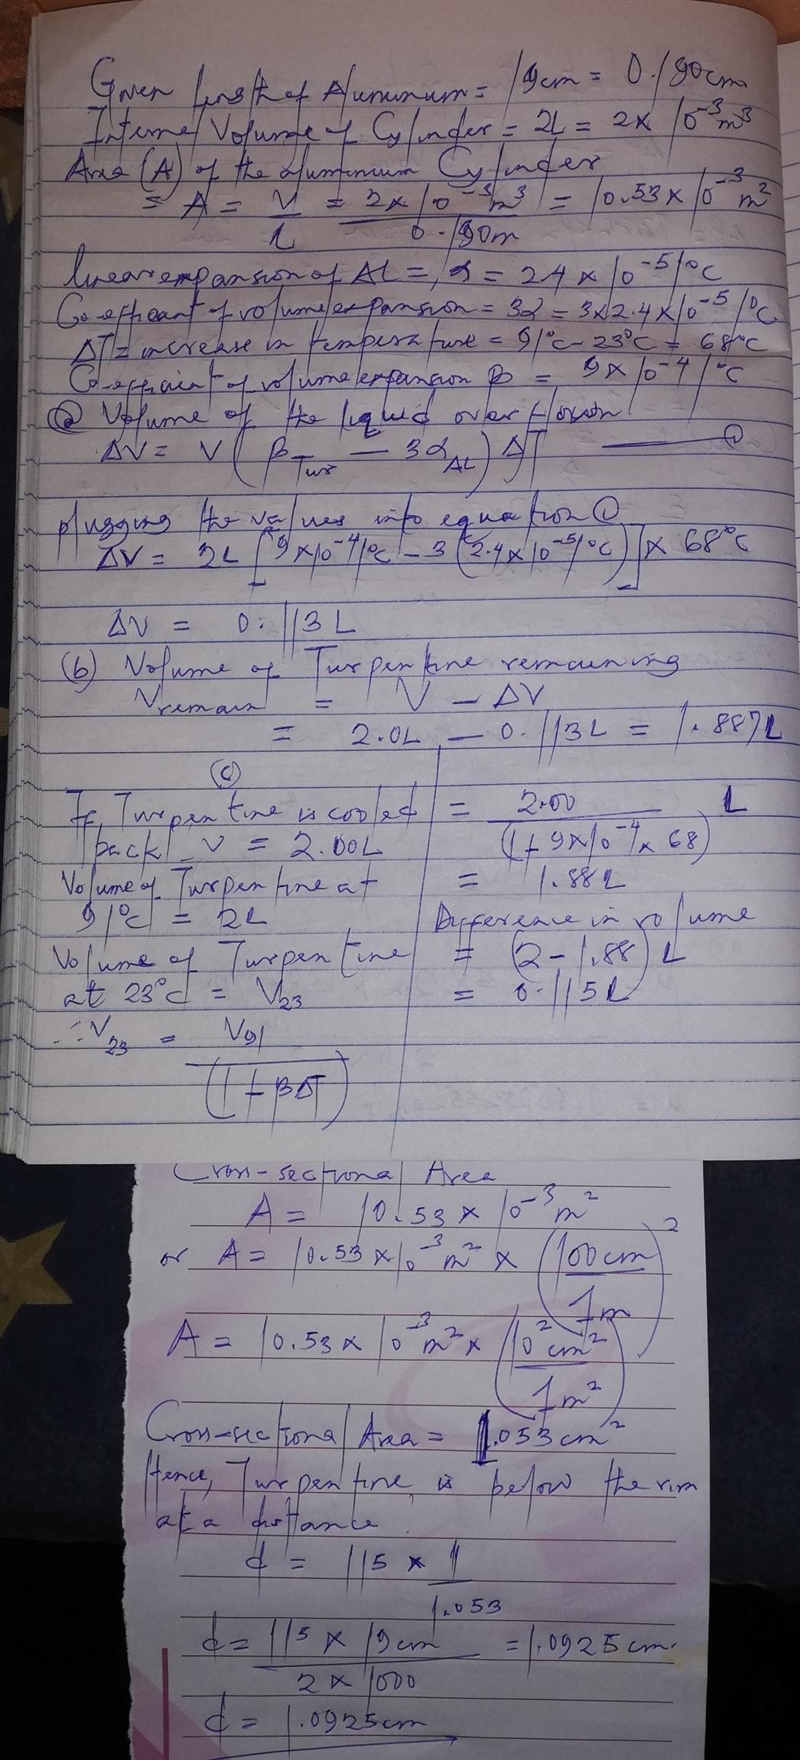 Given length of Aluminum = 19cm = 0.190cm
Internal Volume of Cylinder = 2L = 2 × 10⁻³m³
Area (A) of the aluminium Cylinder
= A = V/L = 2×10⁻³m³/0.190m = 10.53×10⁻³m²
linear expansion of AL =, α = 2.4 × 10⁻⁵/°C
Co-efficient of volume expansion = 3α = 3×2.4×10⁻⁵/°C
ΔT = increase in temperature = 91°C - 23°C = 68°C
Co-efficient of volume expansion β = 9×10⁻⁴/°C
(a) Volume of the liquid over flown
ΔV = V(β_Tur — 3α_AL) ΔT —— (1)
plugging the values into equation (1)
ΔV = 2L [9×10⁻⁴/°C - 3(2.4×10⁻⁵/°C)] × 68°C
ΔV = 0.113L
(b) Volume of Turpentine remaining
Vremain = V - ΔV
= 2.0L - 0.113L = 1.887L
(c)
If Turpentine is cooled
back V = 2.00L
Volume of Turpentine at
91°C = 2L
Volume of Turpentine
at 23°C = V₂₃
∴ V₂₃ = V91/(1+βΔT)
= 2.00/(1+9×10⁻⁴×68) L
= 1.88L
Difference in volume
= (2-1.88)L
= 0.115L
Cross-sectional Area
A = 10.53 × 10⁻³m²
or A = 10.53×10⁻³m² × (100cm/1m)²
A = 10.53 × 10⁻³m² × (10²cm²/1m²)
Cross-sectional Area = 1.053cm²
Hence, Turpentine, is below the rim
at a distance.
d = 115 × 1/1.053
d = 115 × 19cm/2×1000 = 1.0925cm.
d = 1.0925cm